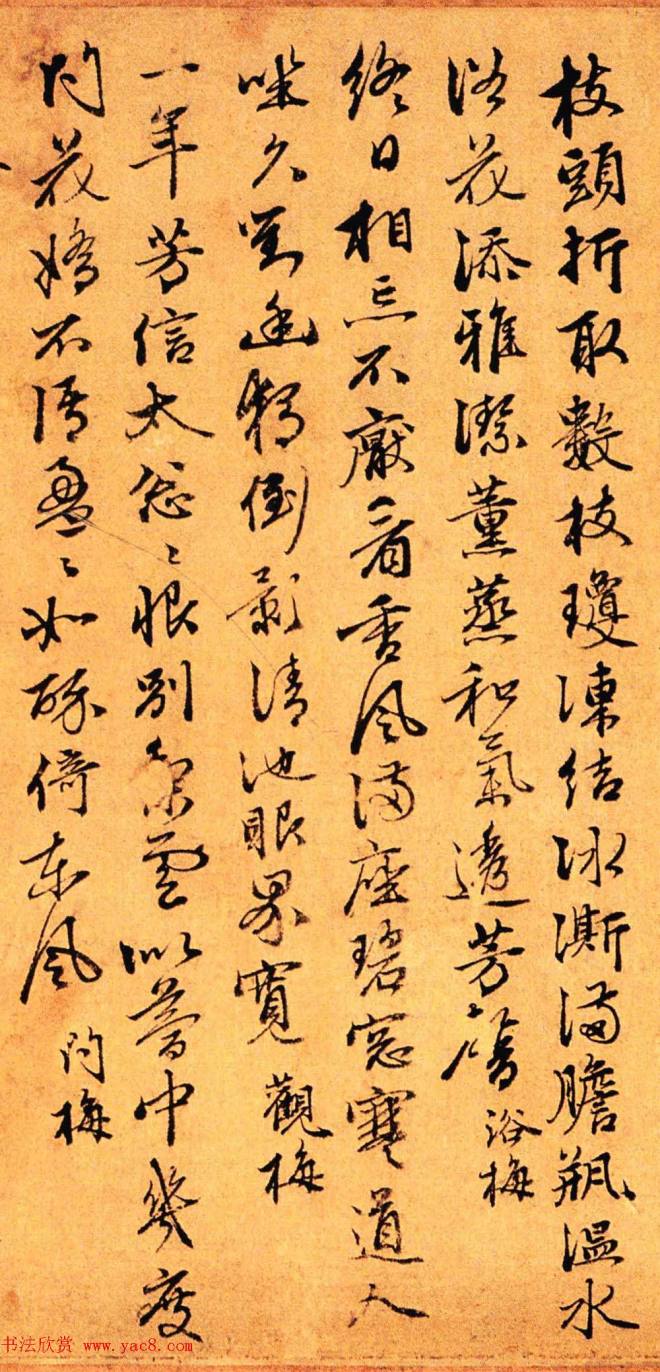 枝頭折取數枝瓊凍結冰澌滿膽瓶溫水
浴花添雅潔薰蒸和氣透芳馨 浴梅
終日相忘不厭看香風滿座碧窓寒道人
坐久笑逃禪倒影清池眼界寬 觀梅
一年芳信太怱〻恨別梨雲似夢中幾度
問花嬌不語盈〻如醉倚東風 問梅
书法欣赏 www.yac8.com